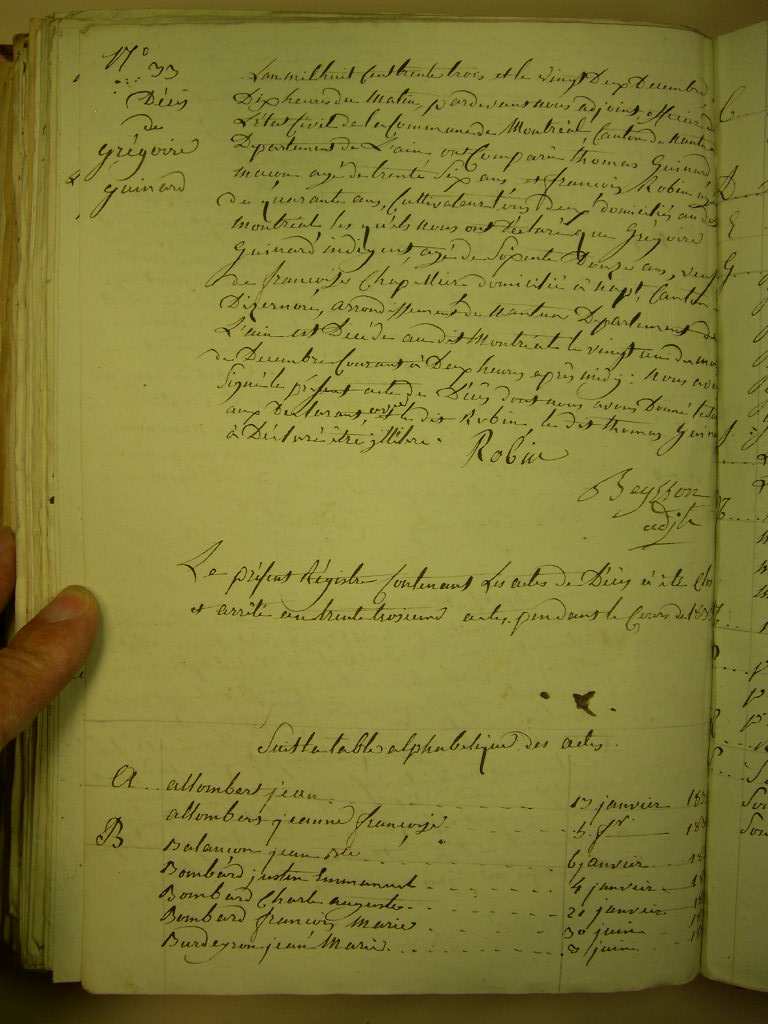 N° 33
Décès
de
Grégoire
Guinard
L'an mil huit cent trente trois et le vingt deux Decembre
Dix heures du matin, par devant nous adjoint officier de
L'état Civil de la Commune de Montréal, Canton de Nantua
Departement de L'ain ont Comparu Thomas Guinard
macon agé de trente six ans, et françois Robin agé
de quarante ans, Cultivateur tous deux domiciliés au dit
montréal les quels nous ont déclaré que Grégoire
Guinard indigent, agé de soixante Douze ans, veuf
de françoise Chapellier domicilié à napt, Canton
Dizernore, arrondissement de Nantua Departement de
L'ain est Décédé au dit Montréal le vingt un du mois
de Decembre Courant à Deux heures après midy: Nous avons
signé le présent acte de Décès dont nous avons Donné lecture
aux Declarants et le dit Robin, le dit Thomas Guinard
à Déclaré être illétré.
Robin
Beysson
adjt
Le présent Régistre Contenant Les actes de Décès à été Clos
et arrêté au trente troisieme acte, pendant le Cours de 1833
Suit la table alphabetique des actes.
A allombert jean 13 janvier 183
allombert jeanne françoise 5 fr. 183
B Balançon jean 6 janvier 18
Bombard justin Emmanuel 4 janvier 18
Bombard Charle auguste 21 janvier 18
Bombard françois Marie 30 juin 18
Burdeyron jean Marie 8 juin